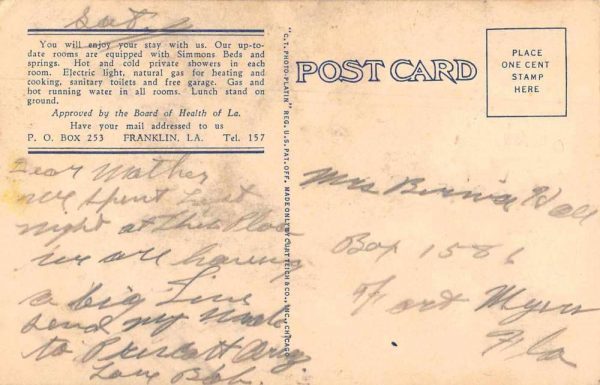 Sat.
You will enjoy your stay with us. Our up-to-
date rooms are equipped with Simmons Beds and
springs. Hot and cold private showers in each
room. Electric light, natural gas for heating and
cooking, sanitary toilets and free garage. Gas and
hot running water in all rooms. Lunch stand on
ground.
Approved by the Board of Health of La.
Have your mail addressed to us
P. O. BOX 253 FRANKLIN, LA. Tel. 157
Dear Mother
we spent last
night at this place
we are having
a big time
send my mail
to Prescott Ariz.
Love Bob.
"C. T. PHOTO-PLATIN" REG. U. S. PAT. OFF. MADE ONLY BY CURT TEICH & CO., INC., CHICAGO
POST CARD
PLACE
ONE CENT
STAMP
HERE
Mrs
Box 1586
Fort Myers
Fla